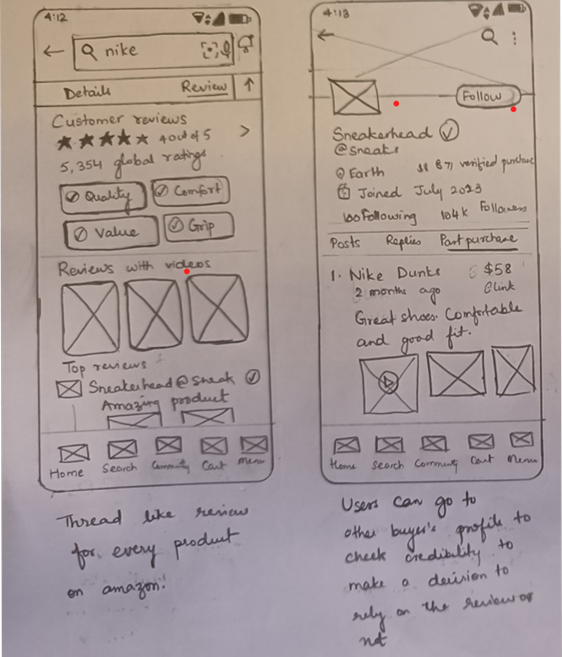 4:12
nike
Details Review
Customer reviews
4 out of 5
5,354 global ratings
Quality Comfort
Value Grip
Reviews with videos
Top reviews
Sneakerhead@Sneak
Amazing product
Home Search Community Cart Menu
Thread like review
for every product
on amazon!
4:13
Follow
Sneakerhead
@Sneaks
Earth 871 verified purchase
Joined July 2023
100 Following 104k Followers
Posts Replies Past purchase
1. Nike Dunks $58
2 months ago link
Great shoes. Comfortable
and good fit.
Home Search Community Cart Menu
Users can go to
other buyer's profile to
check credibility to
make a decision to
rely on the review or
not